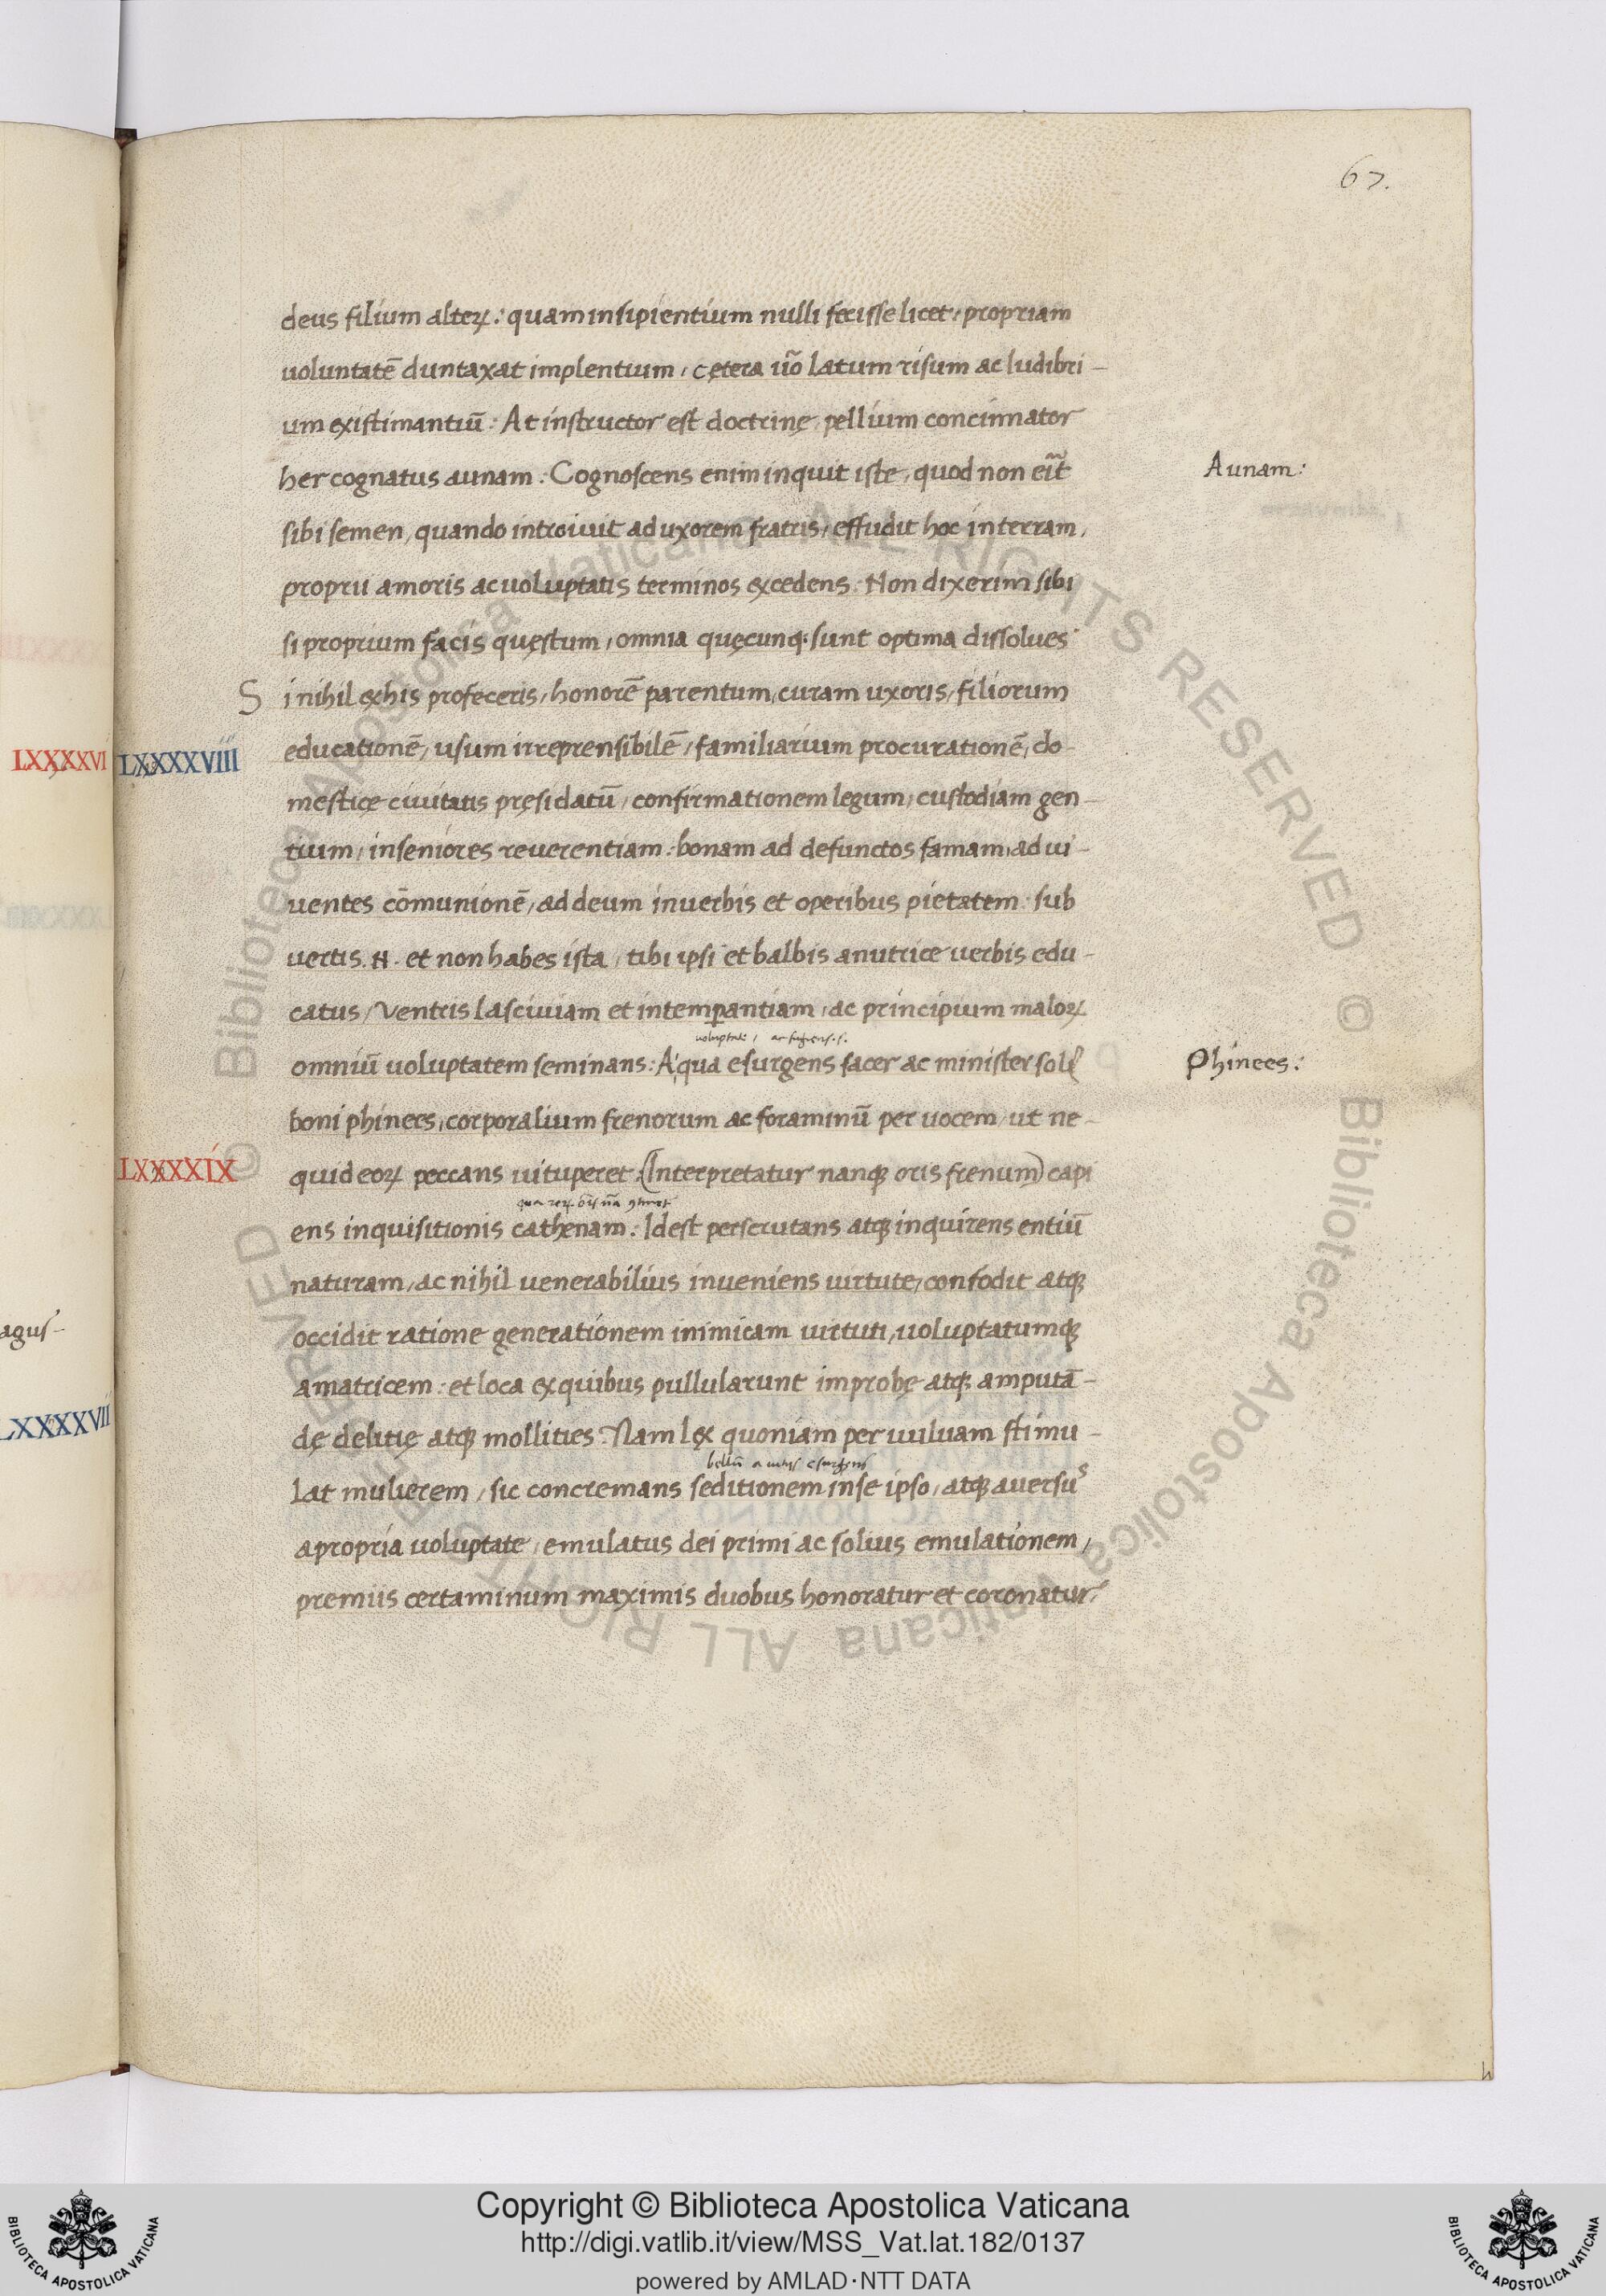 67.
deus filium alteꝝ: quam insipientium nulli fecisse licet: propriam
uoluntatē duntaxat implentium, cętera ůo latum risum ac ludibri-
um existimantiū: At instructor est doctrinę pellium concinnator
her cognatus aunam: Cognoscens enim inquit iste, quod non eīt
Aunam:
sibi semen, quando introiuit ad uxorem fratris, effudit hoc in terram,
proprii amoris ac uoluptatis terminos excedens. Non dixerim sibi
si proprium facis quęstum, omnia quęcunq; sunt optima dissolues
S
i nihil ex his profeceris, honorē parentum, curam uxoris, filiorum
LXXXXVI LXXXXVIII
educationē, usum irreprensibilē, familiarium procurationē, do-
mesticę ciuitatis pręsidatū, confirmationem legum, custodiam gen-
tium, in seniores reuerentiam: bonam ad defunctos famam, ad ui-
uentes cōmunionē, ad deum in uerbis et operibus pietatem: sub
uertis. N. et non habes ista, tibi ipsi et balbis a nutrice uerbis edu-
catus, Ventris lasciuiam et intemꝑantiam, ac principium maloꝝ
omniū uoluptatem seminans: A qua esurgens sacer ac minister soli
Phinees:
boni phinees, corporalium frenorum ac foraminū per uocem, ut ne-
LXXXXIX
quid eoꝝ peccans uituperet: (Interpretatur nanq; oris frenum) capi
ens inquisitionis cathenam: Idest perscrutans atq; inquirens entiū
naturam, ac nihil uenerabilius inueniens uirtute, confodit atq;
agus-
occidit ratione generationem inimicam uirtuti, uoluptatumq;
amatricem: et loca ex quibus pullularunt improbę atq; amputā-
LXXXXVII
dę delitię atq; mollities. Nam lex quoniam per uuluam stimu-
lat mulierem, sic concremans seditionem in se ipso, atq; auersus
a propria uoluptate, emulatus dei primi ac solius emulationem,
premiis certaminum maximis duobus honoratur et coronatur.
Copyright © Biblioteca Apostolica Vaticana
http://digi.vatlib.it/view/MSS_Vat.lat.182/0137
powered by AMLAD·NTT DATA
BIBLIOTECA APOSTOLICA VATICANA
BIBLIOTECA APOSTOLICA VATICANA
© Biblioteca Apostolica Vaticana ALL RIGHTS RESERVED © Biblioteca Apostolica Vaticana ALL RIGHTS RESERVED